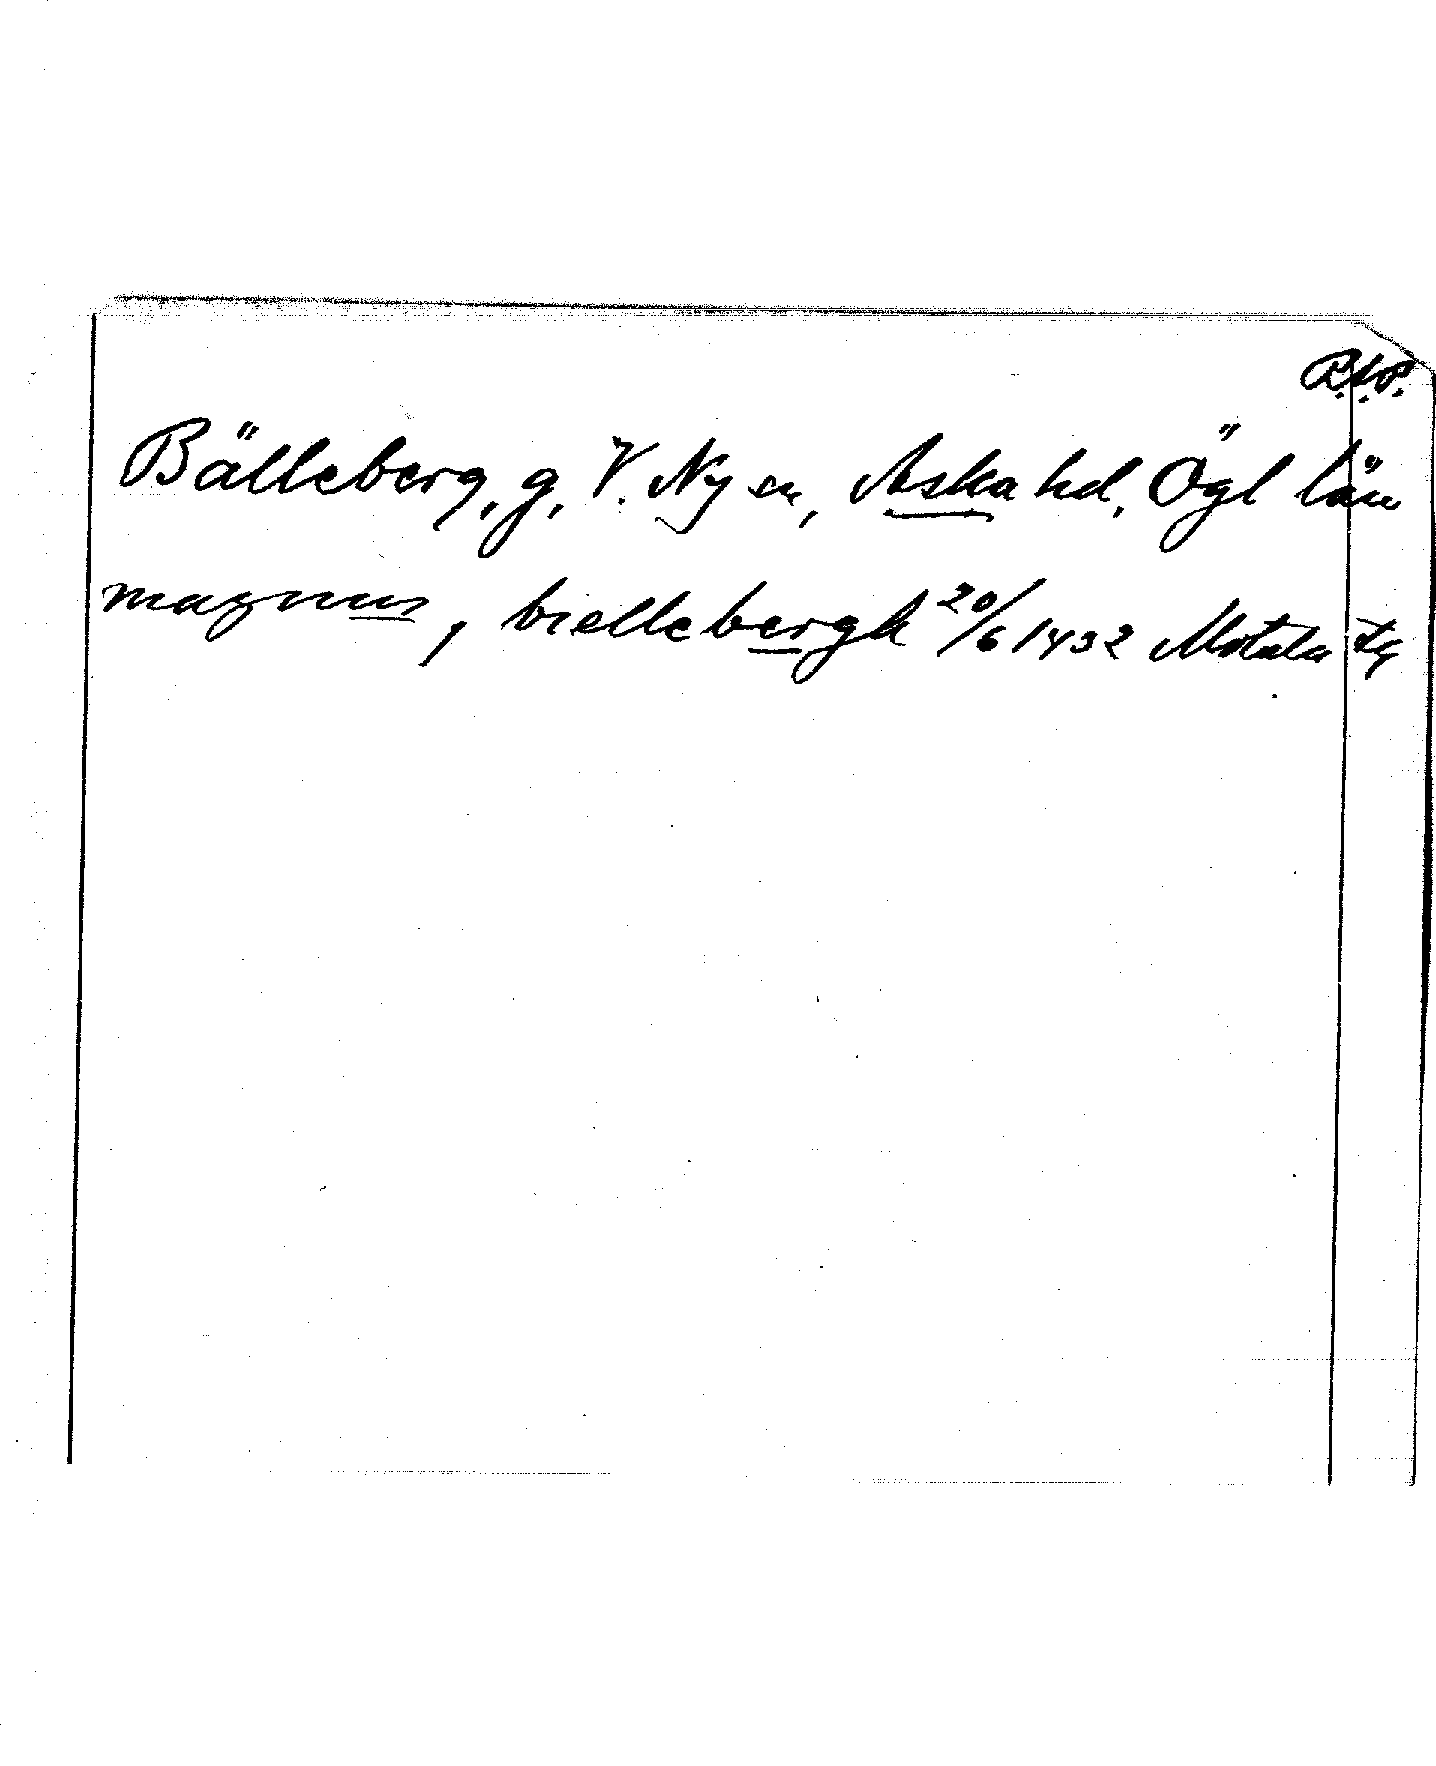 Bälleberg, g, V. Ny sn, Aska hd, Ögl län
magnus, biellebergh 20/6 1432 Motala